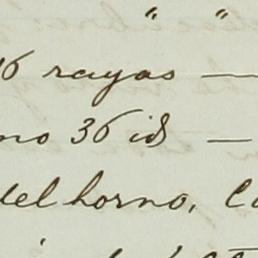 " "
16 rayas —
no 36 id —
del horno. Ca